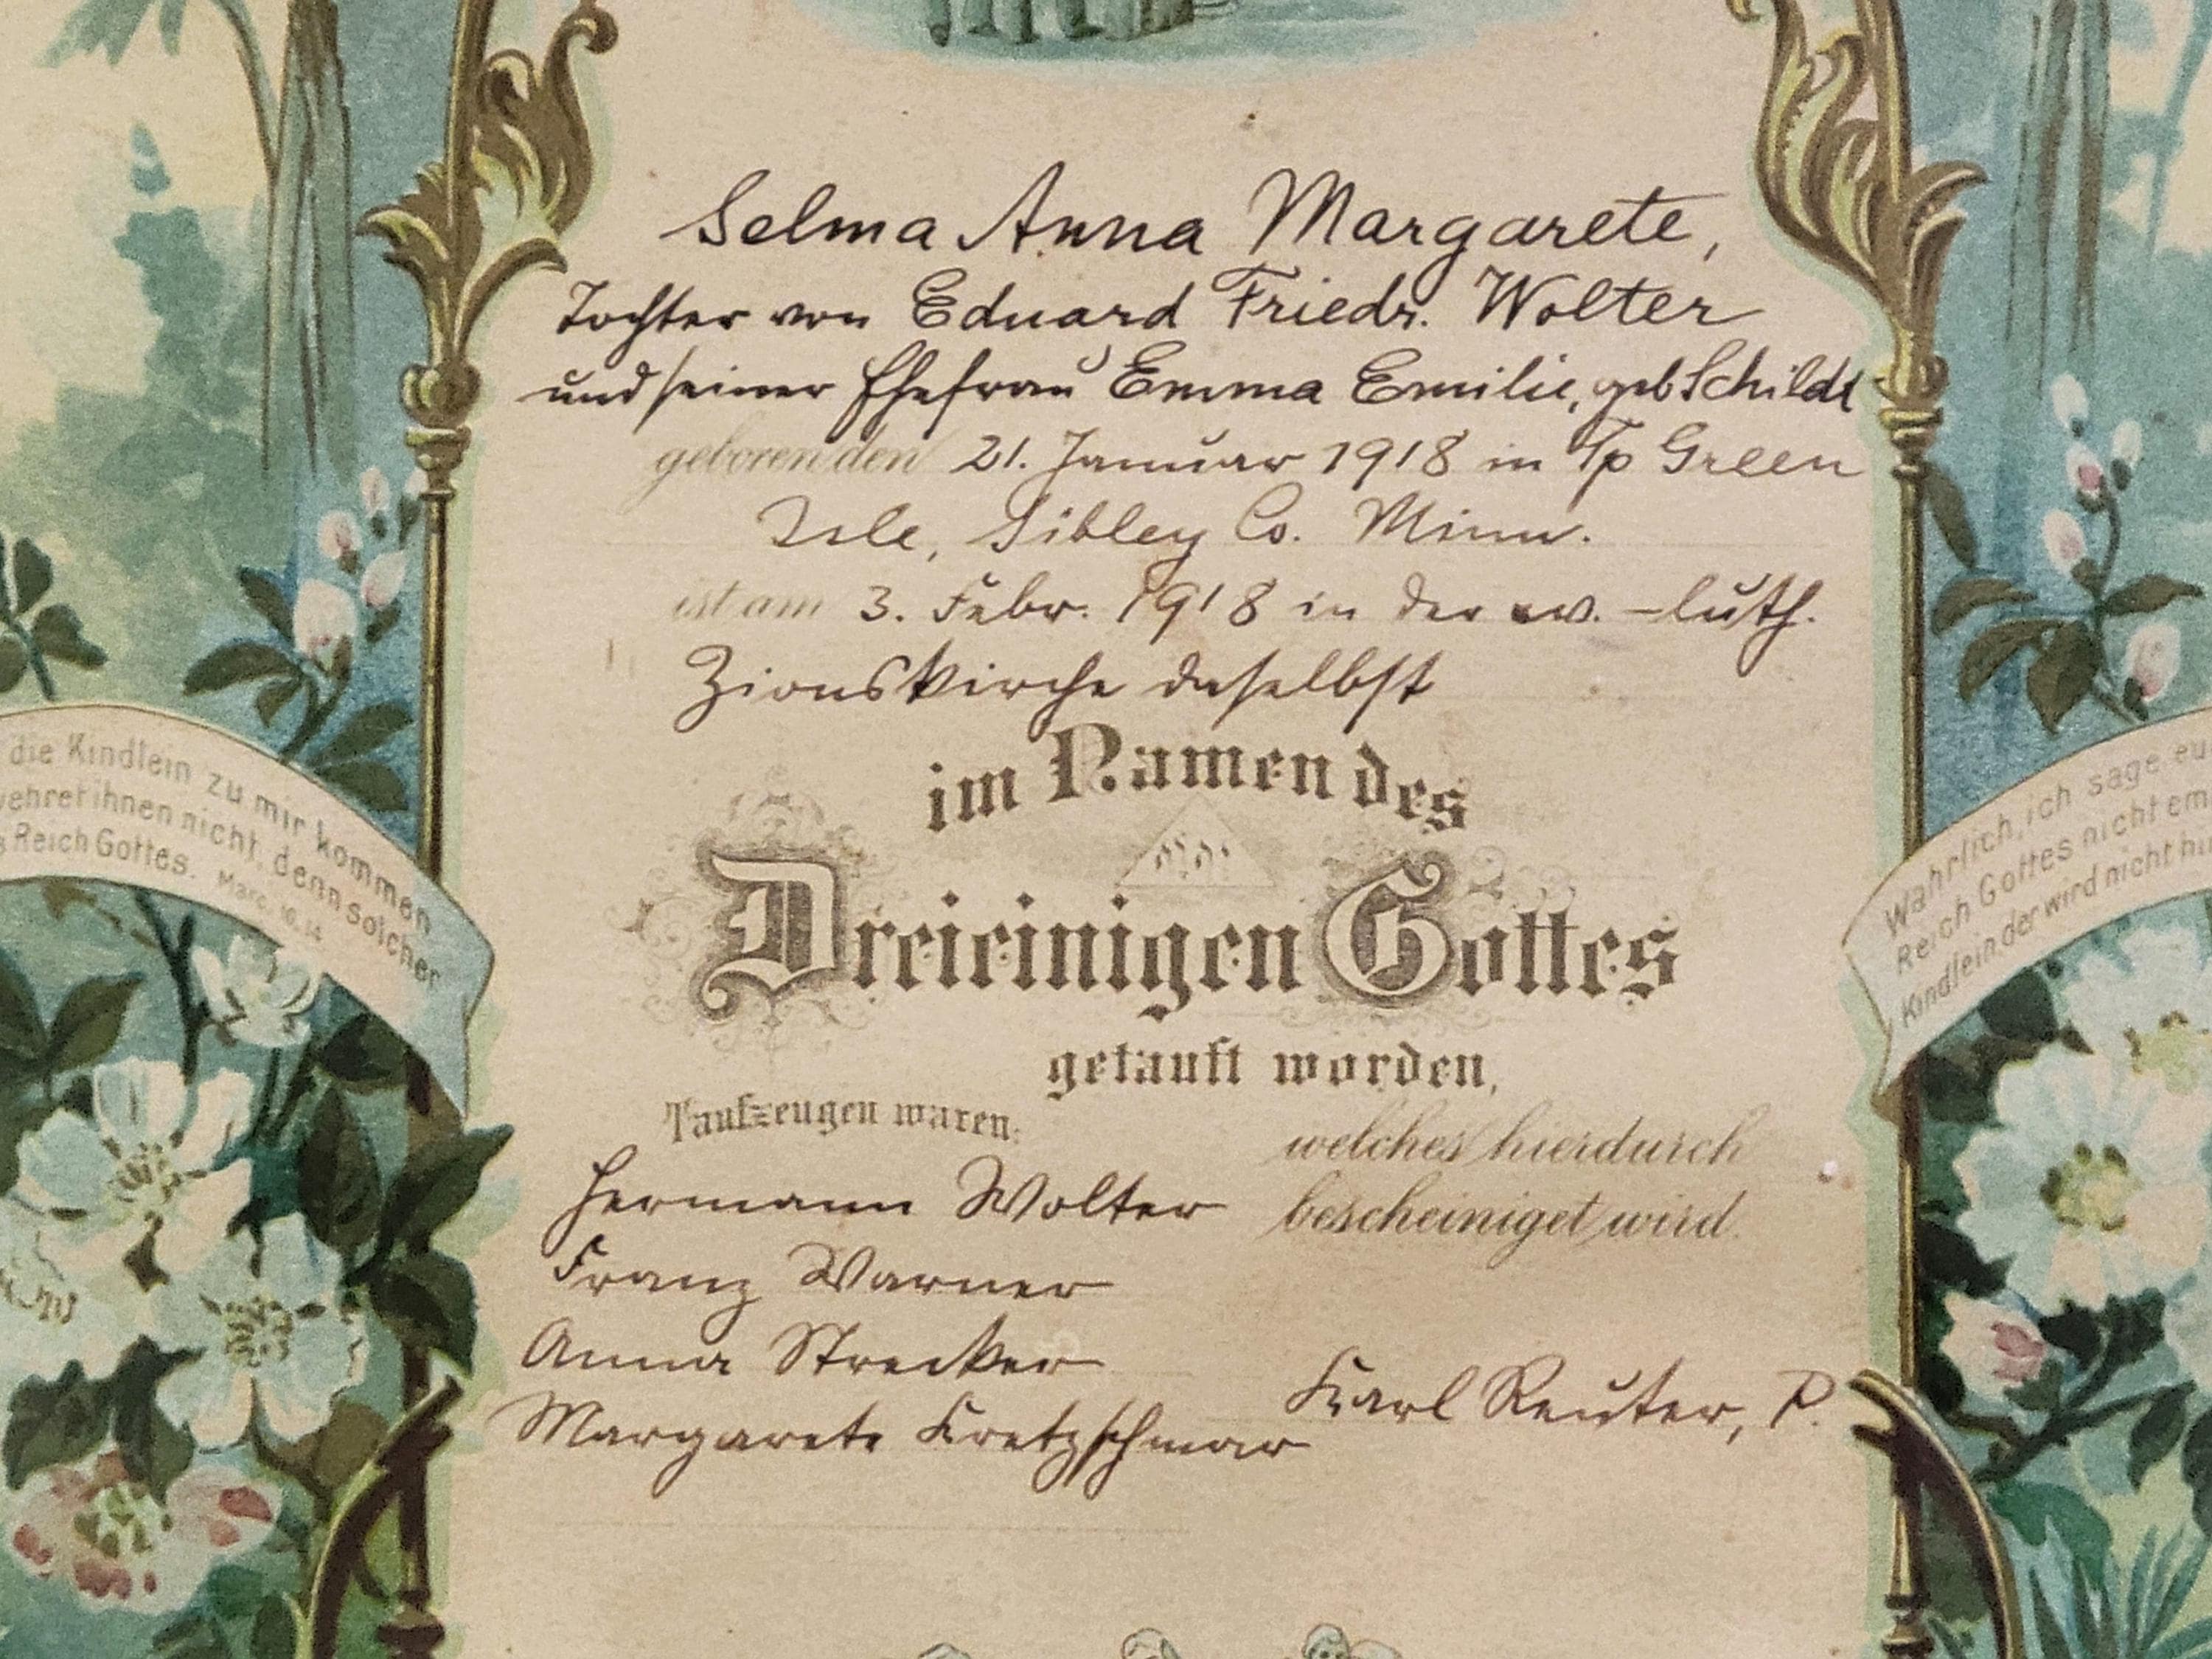 Selma Anna Margarete,
Tochter von Eduard Friedr. Wolter
und seiner Ehefrau Emma Emilie, geb Schildt
geboren den 21. Januar 1918 in Tp Green
Isle, Sibley Co. Minn.
ist am 3. Febr. 1918 in der ev.-luth.
Zionskirche daselbst
im Namen des
Dreieinigen Gottes
getauft worden,
Taufzeugen waren:
welches hierdurch
bescheiniget wird.
Hermann Wolter
Franz Warner
Anna Strecker
Margarete Kretzschmar
Karl Reuter, P.
die Kindlein zu mir kommen
wehret ihnen nicht, denn solcher
Reich Gottes. Marc. 10.14
Wahrlich, ich sage eu
Reich Gottes nicht em
Kindlein der wird nicht hi